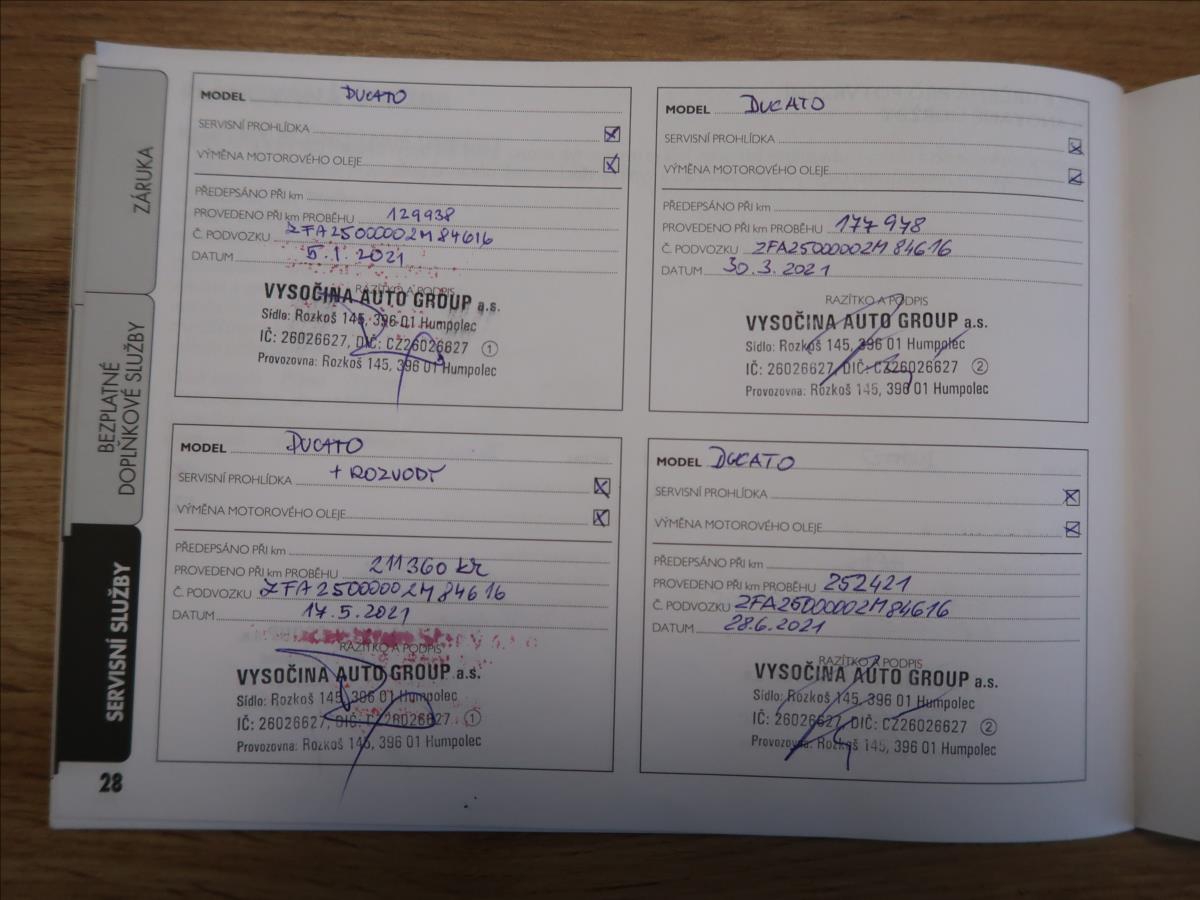 ZÁRUKA
BEZPLATNÉ
DOPLŇKOVÉ SLUŽBY
SERVISNÍ SLUŽBY
MODEL DUCATO
SERVISNÍ PROHLÍDKA
VÝMĚNA MOTOROVÉHO OLEJE
PŘEDEPSÁNO PŘI km
PROVEDENO PŘI km PROBĚHU 129938
Č. PODVOZKU ZFA25000002M84616
DATUM 5.1.2021
RAZÍTKO A PODPIS
VYSOČINA AUTO GROUP a.s.
Sídlo: Rozkoš 145, 396 01 Humpolec
IČ: 26026627, DIČ: CZ26026627 1
Provozovna: Rozkoš 145, 396 01 Humpolec
MODEL DUCATO
SERVISNÍ PROHLÍDKA
VÝMĚNA MOTOROVÉHO OLEJE
PŘEDEPSÁNO PŘI km
PROVEDENO PŘI km PROBĚHU 177978
Č. PODVOZKU ZFA25000002M84616
DATUM 30.3.2021
RAZÍTKO A PODPIS
VYSOČINA AUTO GROUP a.s.
Sídlo: Rozkoš 145, 396 01 Humpolec
IČ: 26026627, DIČ: CZ26026627 2
Provozovna: Rozkoš 145, 396 01 Humpolec
MODEL DUCATO
+ ROZVODY
SERVISNÍ PROHLÍDKA
VÝMĚNA MOTOROVÉHO OLEJE
PŘEDEPSÁNO PŘI km
PROVEDENO PŘI km PROBĚHU 211360 km
Č. PODVOZKU ZFA25000002M84616
DATUM 17.5.2021
RAZÍTKO A PODPIS
VYSOČINA AUTO GROUP a.s.
Sídlo: Rozkoš 145, 396 01 Humpolec
IČ: 26026627, DIČ: CZ26026627 1
Provozovna: Rozkoš 145, 396 01 Humpolec
MODEL DUCATO
SERVISNÍ PROHLÍDKA
VÝMĚNA MOTOROVÉHO OLEJE
PŘEDEPSÁNO PŘI km
PROVEDENO PŘI km PROBĚHU 252421
Č. PODVOZKU ZFA25000002M84616
DATUM 28.6.2021
RAZÍTKO A PODPIS
VYSOČINA AUTO GROUP a.s.
Sídlo: Rozkoš 145, 396 01 Humpolec
IČ: 26026627, DIČ: CZ26026627 2
Provozovna: Rozkoš 145, 396 01 Humpolec
28